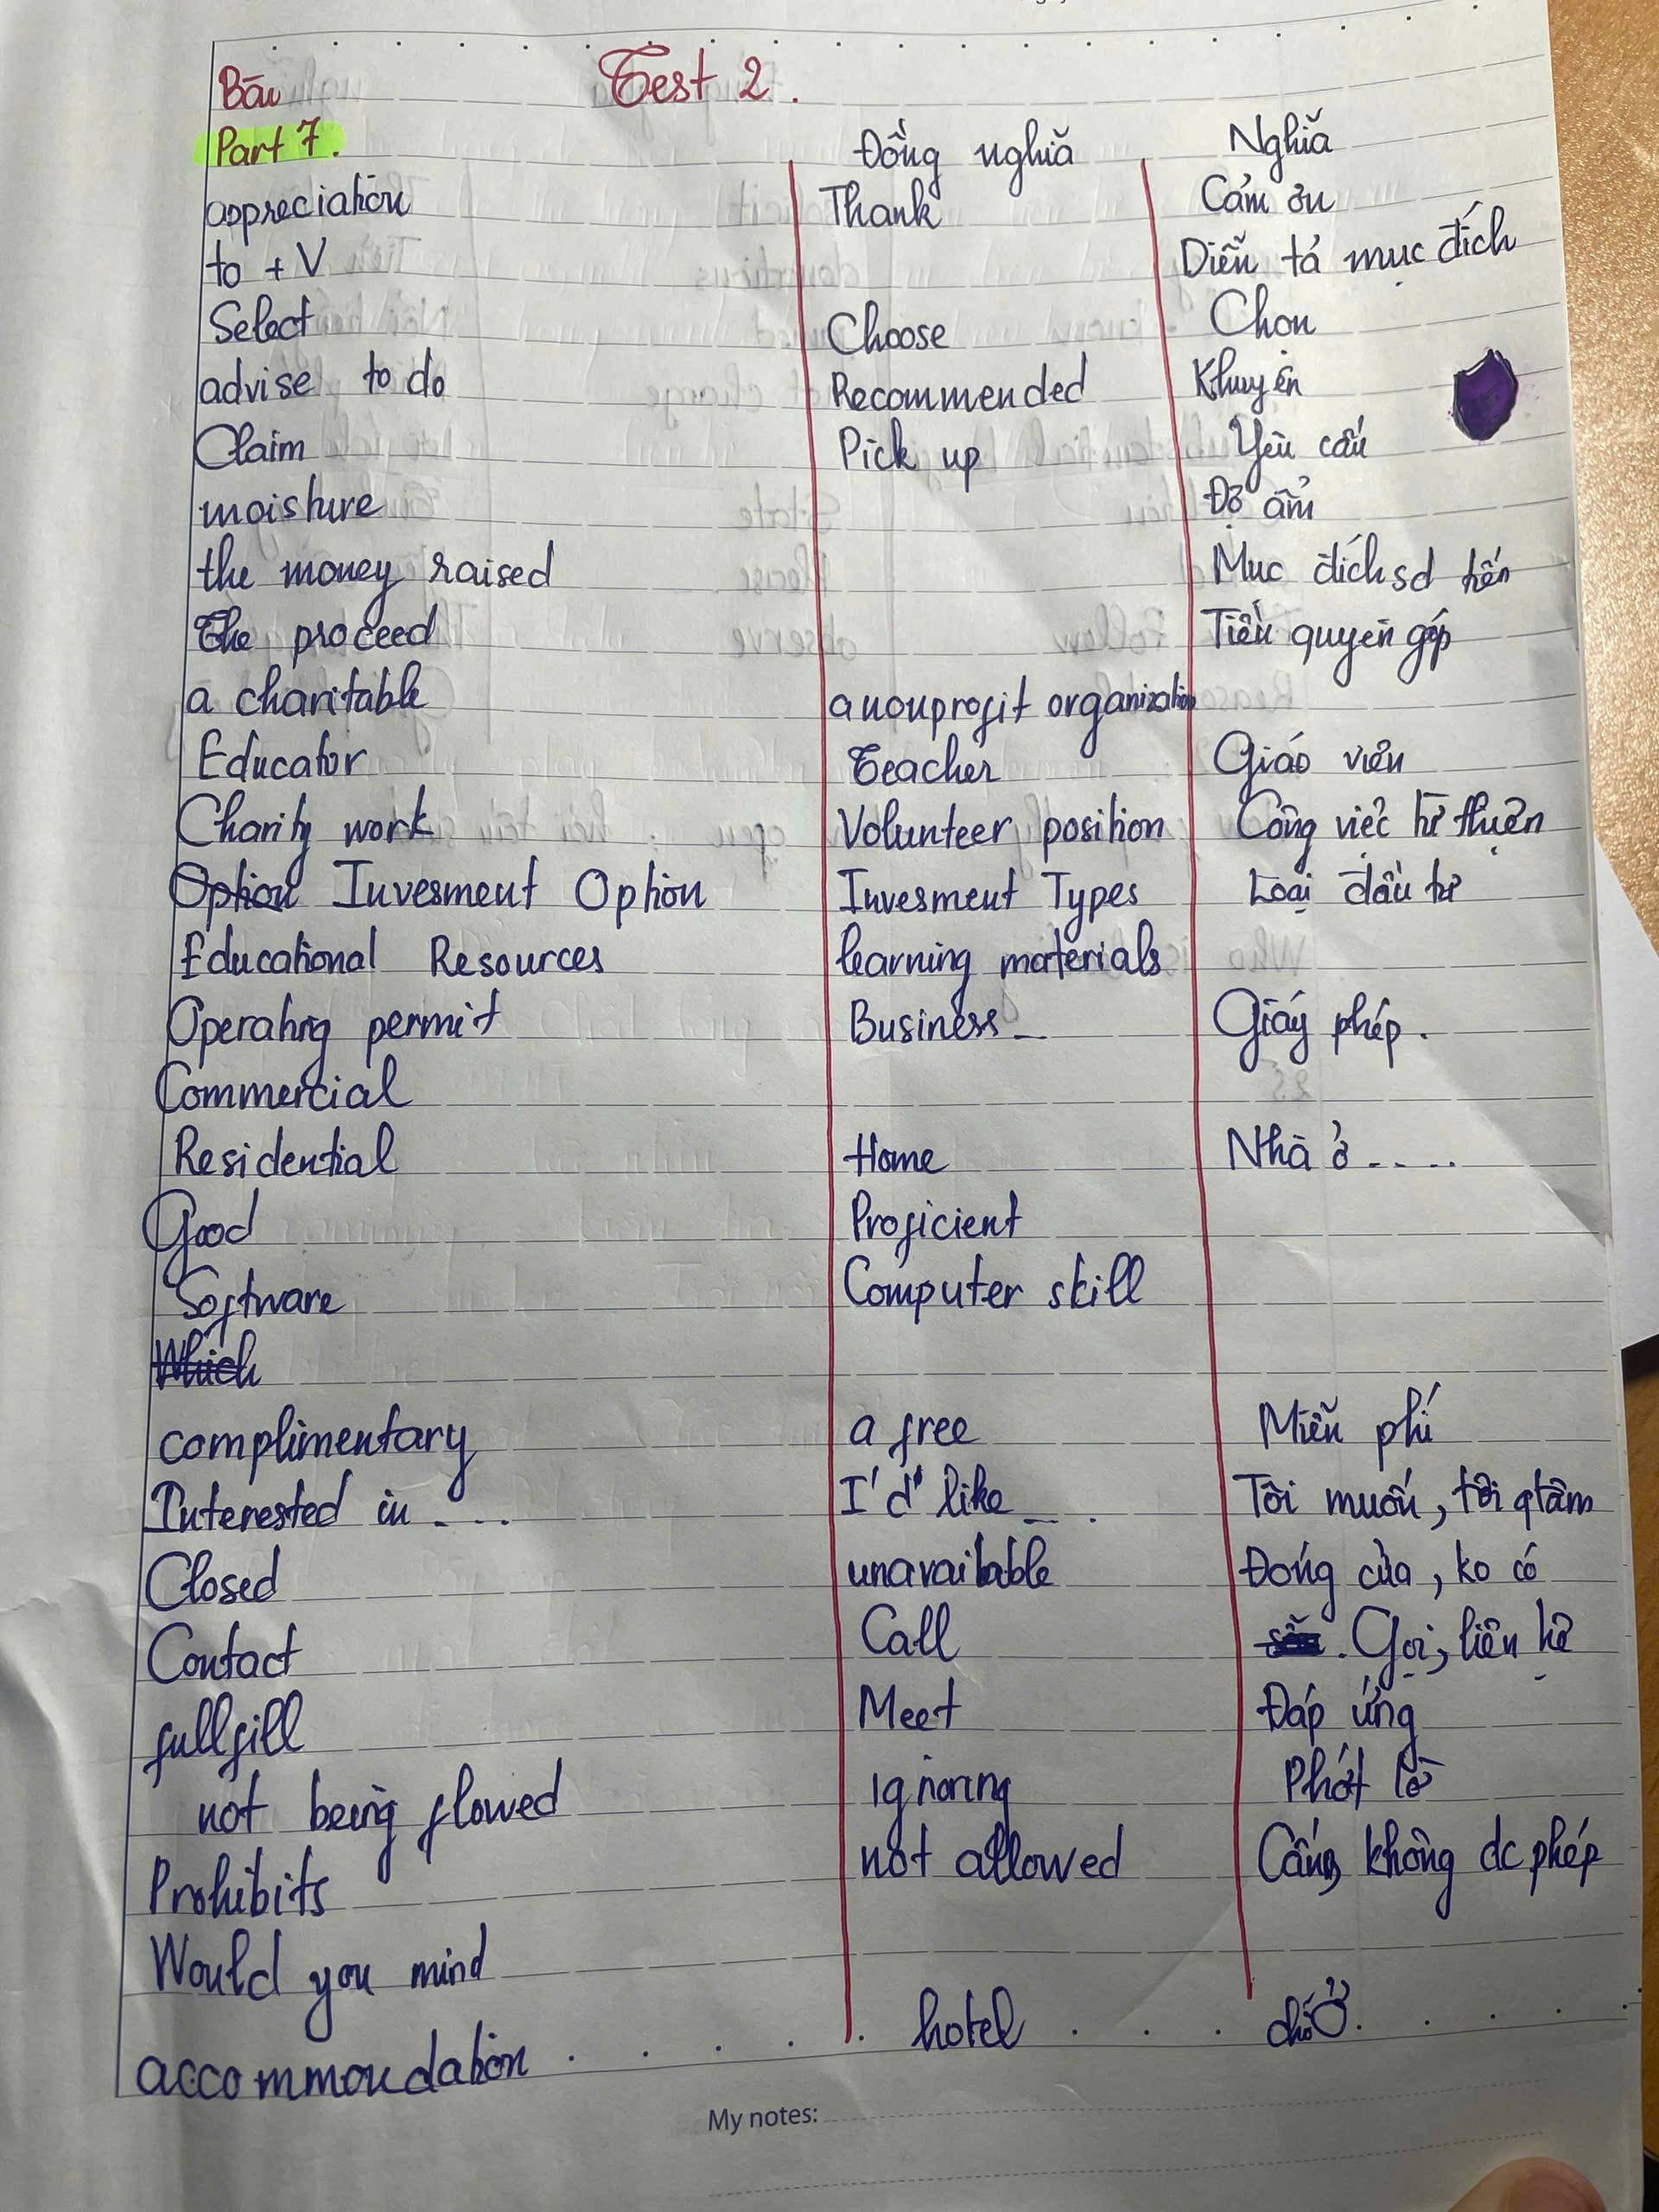 Test 2.
Part 7. Đồng nghĩa Nghĩa
appreciation Thank Cảm ơn
to + V Diễn tả mục đích
Select Choose Chọn
advise to do Recommended Khuyên
Claim Pick up Yêu cầu
moisture Độ ẩm
the money raised Mục đích sd tiền
The proceed Tiền quyên góp
a charitable a nonprofit organization
Educator Teacher Giáo viên
Charity work Volunteer position Công việc từ thiện
Option Invesment Option Invesment Types Loại đầu tư
Educational Resources learning materials
Operating permit Business Giấy phép.
Commercial
Residential Home Nhà ở.....
Good Proficient
Software Computer skill
Which
complimentary a free Miễn phí
Interested in .... I'd like ... Tôi muốn, tôi qtâm
Closed unavailable Đóng cửa, ko có
Contact Call sẵn. Gọi, liên hệ
fullfill Meet Đáp ứng
not being flowed ignoring Phớt lờ
Prohibits not allowed Cấm, không dc phép
Would you mind
accommoudation hotel chỗ ở.
My notes: